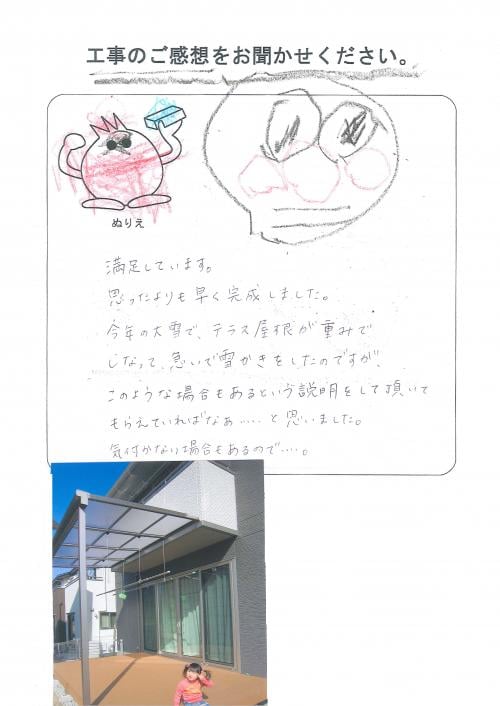 工事のご感想をお聞かせください。
ぬりえ
満足しています。
思ったよりも早く完成しました。
今年の大雪で、テラス屋根が重みで
しなって、急いで雪かきをしたのですが、
このような場合もあるという説明をして頂いて
もらえていればなぁ……と思いました。
気付かない場合もあるので…。